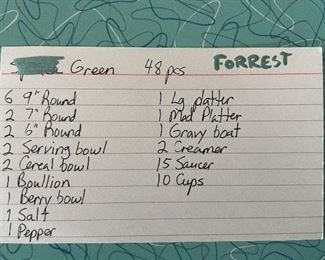 Green 48 pcs FORREST
6 9" Round
2 7" Round
2 6" Round
2 Serving bowl
2 Cereal bowl
1 Boullion
1 Berry bowl
1 Salt
1 Pepper
1 Lg platter
1 Mad Platter
1 Gravy boat
2 Creamer
15 Saucer
10 Cups